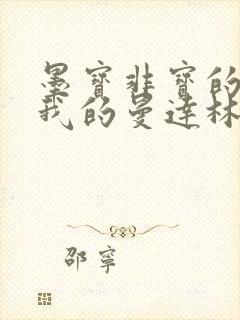 墨寶非寶的
我的曼達林
邵寧